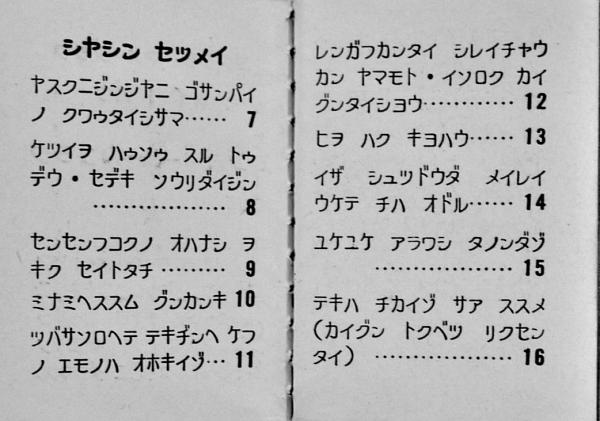 シヤシン セツメイ
ヤスクニジンジヤニ ゴサンパイ
ノ クワウタイシサマ…… 7
ケツイヲ ハウソウ スル トウ
デウ・セデキ ソウリダイジン
……………… 8
センセンフコクノ オハナシ ヲ
キク セイトタチ……… 9
ミナミヘススム グンカンキ 10
ツバサソロヘテ テキヂンヘ ケフ
ノ エモノハ オホキイゾ… 11
レンガフカンタイ シレイチヤウ
カン ヤマモト・イソロク カイ
グンタイシヨウ………… 12
ヒヲ ハク キヨハウ…… 13
イザ シュツドウダ メイレイ
ウケテ チハ オドル…… 14
ユケユケ アラワシ タノンダゾ
……………… 15
テキハ チカイゾ サア ススメ
(カイグン トクベツ リクセン
タイ) ……………… 16